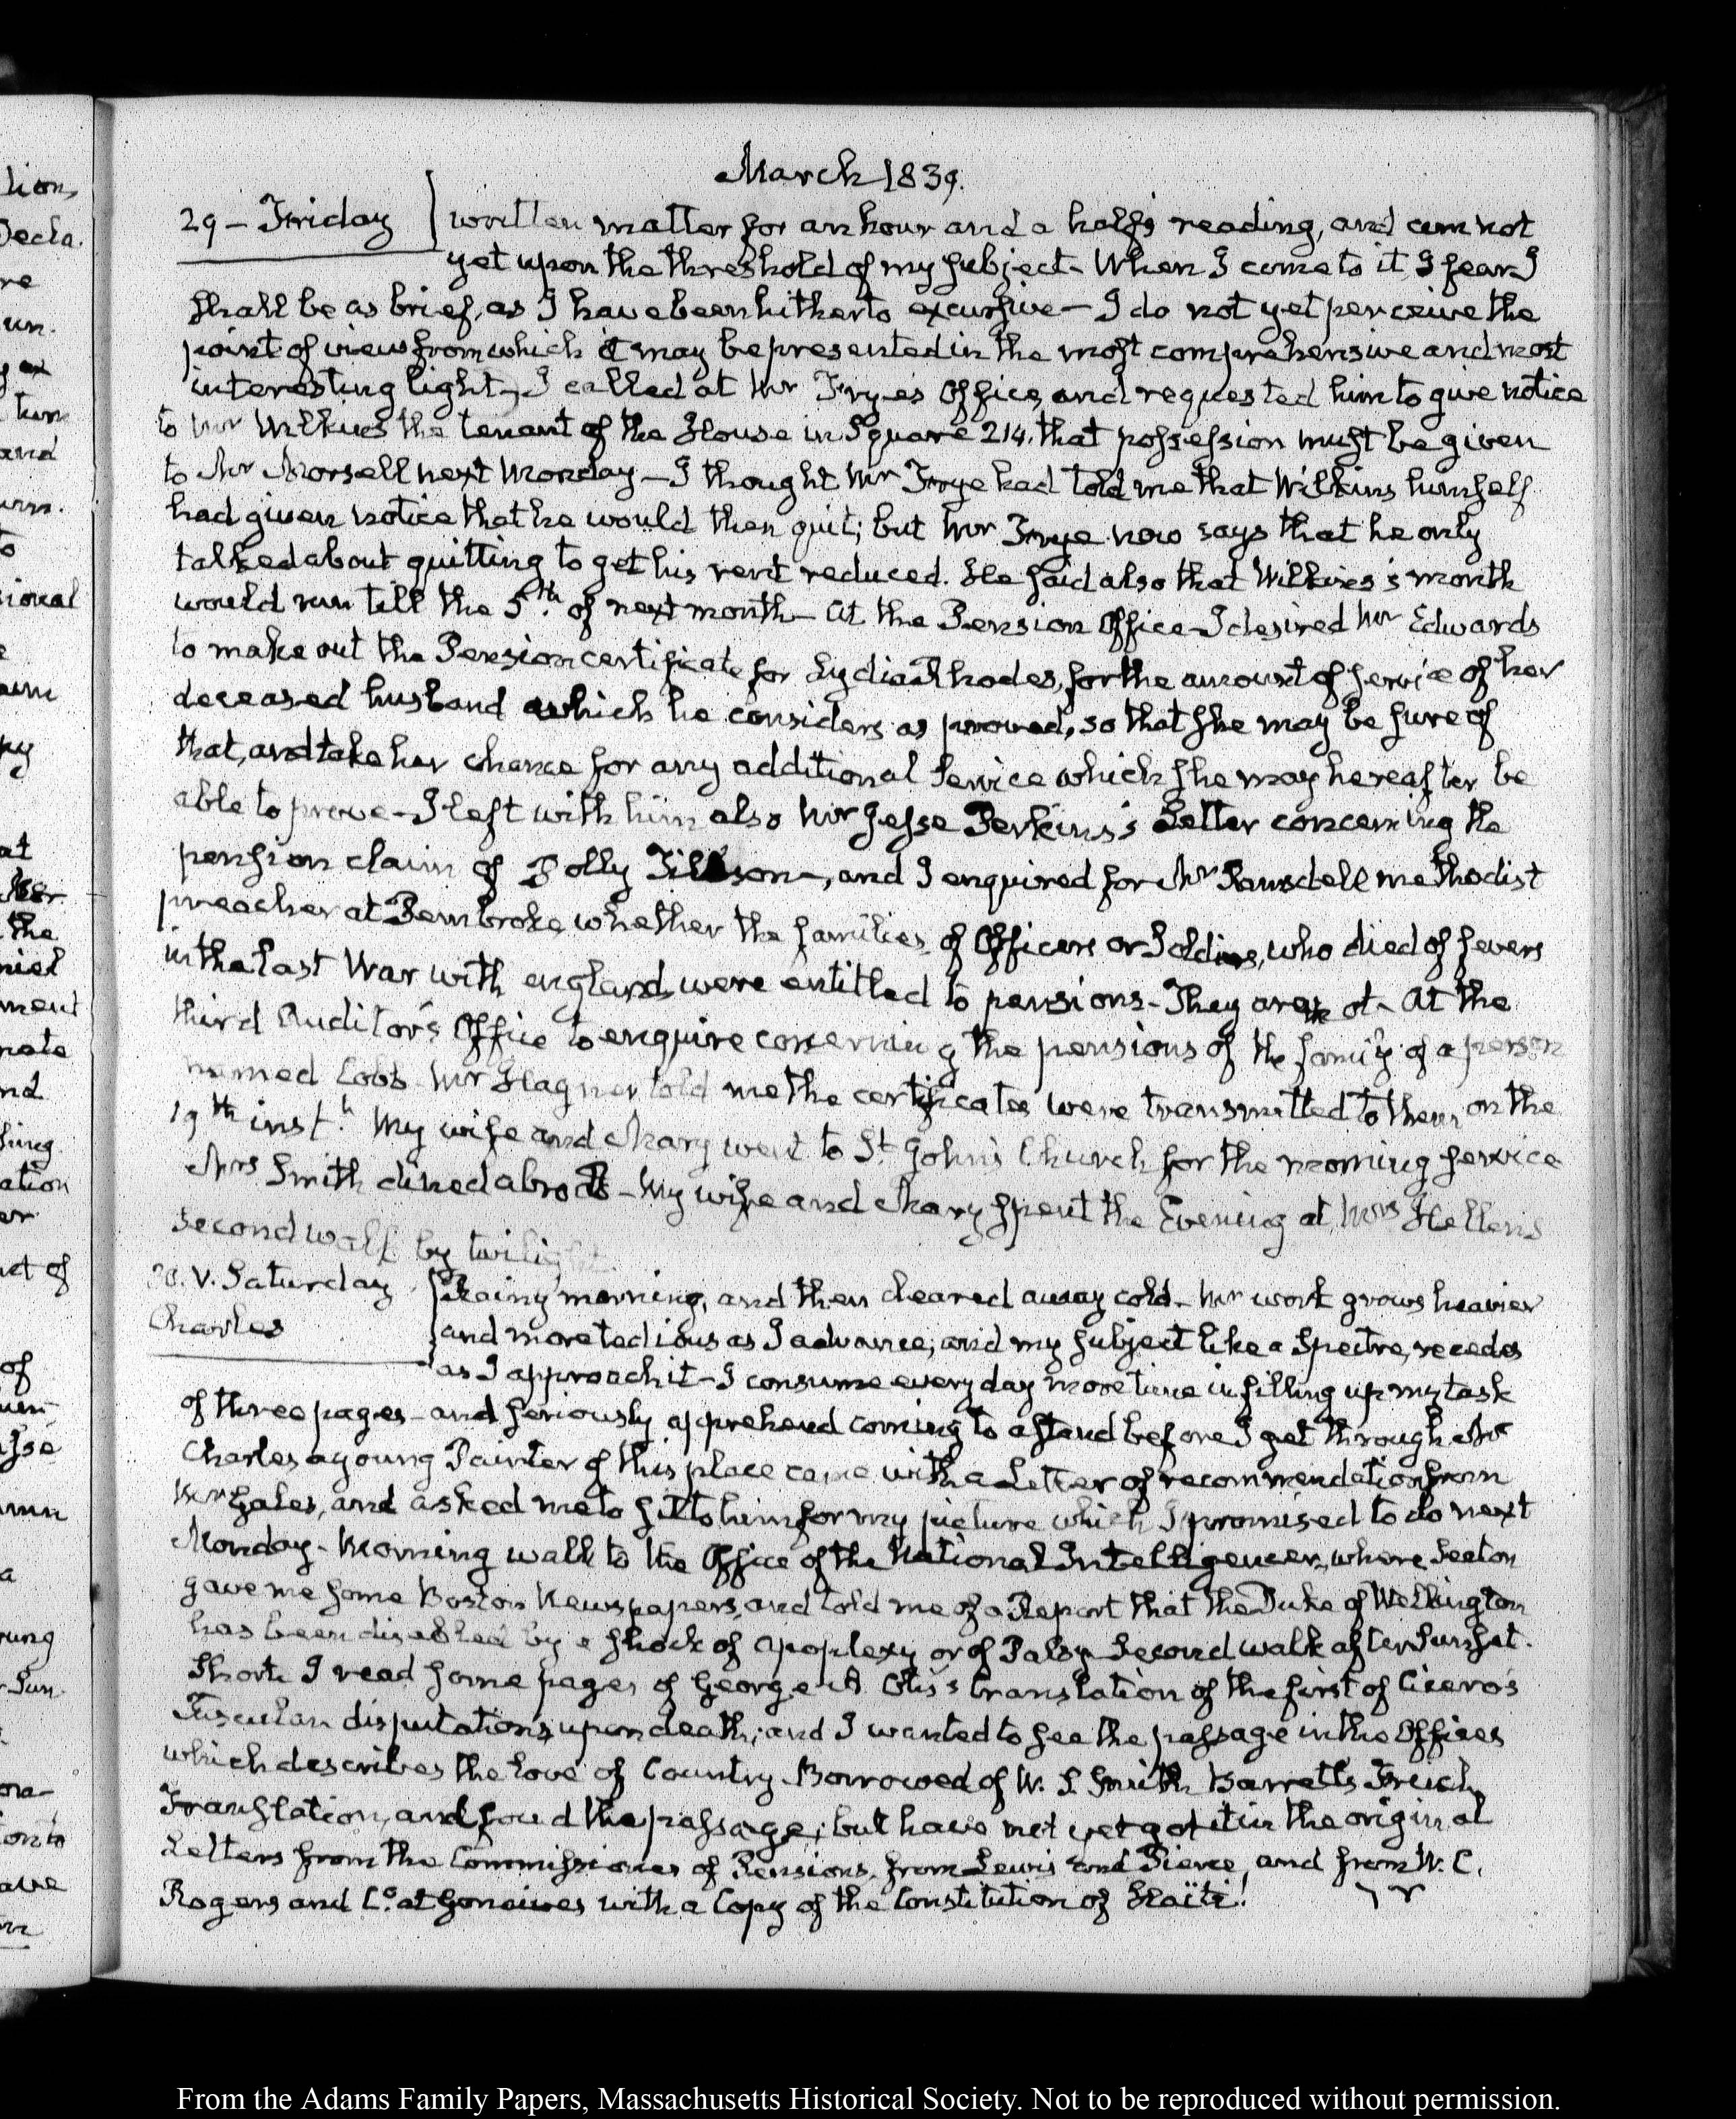 March 1839.
29 – Friday
written matter for an hour and a half's reading, and am not
yet upon the threshold of my subject – When I come to it I fear I
shall be as brief, as I have been hitherto excursive – I do not yet perceive the
point of view from which it may be presented in the most comprehensive and most
interesting light – I called at Mr Frye's Office, and requested him to give notice
to Mr Wilkins the tenant of the House in Square 214. that possession must be given
to Mr Morsell next Monday – I thought Mr Frye had told me that Wilkins himself
had given notice that he would then quit; but Mr Frye now says that he only
talked about quitting to get his rent reduced. He said also that Wilkins's month
would run till the 5th. of next month – At the Pension Office I desired Mr Edwards
to make out the Pension certificate for Lydia Rhodes, for the amount of service of her
deceased husband which he considers as proved, so that she may be sure of
that, and take her chance for any additional service which she may hereafter be
able to prove – I left with him also Mr Jesse Perkins's Letter concerning the
pension claim of Polly Tillson –, and I enquired for Mr Ramsdell methodist
preacher at Pembroke, whether the families of Officers or Soldiers, who died of fevers
in the last War with england, were entitled to pensions – They are not – At the
third Auditor's Office to enquire concerning the pensions of the family of a person
named Cobb Mr Hagner told me the certificates were transmitted to them on the
19th inst. My wife and Mary went to St John's Church for the morning service
Mrs Smith dined abroad – My wife and Mary spent the Evening at Mrs Hellen's
second walk by twilight.
30. V. Saturday
Charles
Rainy morning, and then cleared away cold – Mr work grows heavier
and more tedious as I advance; and my subject like a Spectre, recedes
as I approach it – I consume every day more time in filling up my task
of three pages – and seriously apprehend coming to a stand before I get through. Mr
Charles a young Painter of this place came with a Letter of recommendation from
Mr Gales, and asked me to sit to him for my picture which I promised to do next
Monday – Morning walk to the Office of the National Intelligencer, where Seaton
gave me some Boston Newspapers, and told me of a Report that the Duke of Wellington
has been disabled by a shock of apoplexy or of Palsy Second walk after Sunset.
Short. I read some pages of George A. Otis's translation of the first of Cicero's
Tusculan disputations, upon death; and I wanted to see the passage in the Offices
which describes the love of Country. Borrowed of W. S. Smith Barrett's French
Translation, and found the passage; but have not yet got it in the original
Letters from the Commissioner of Pensions, from Lewis and Pierce, and from W. C.
Rogers and Co. at Gonaives with a Copy of the Constitution of Haïti.
From the Adams Family Papers, Massachusetts Historical Society. Not to be reproduced without permission.